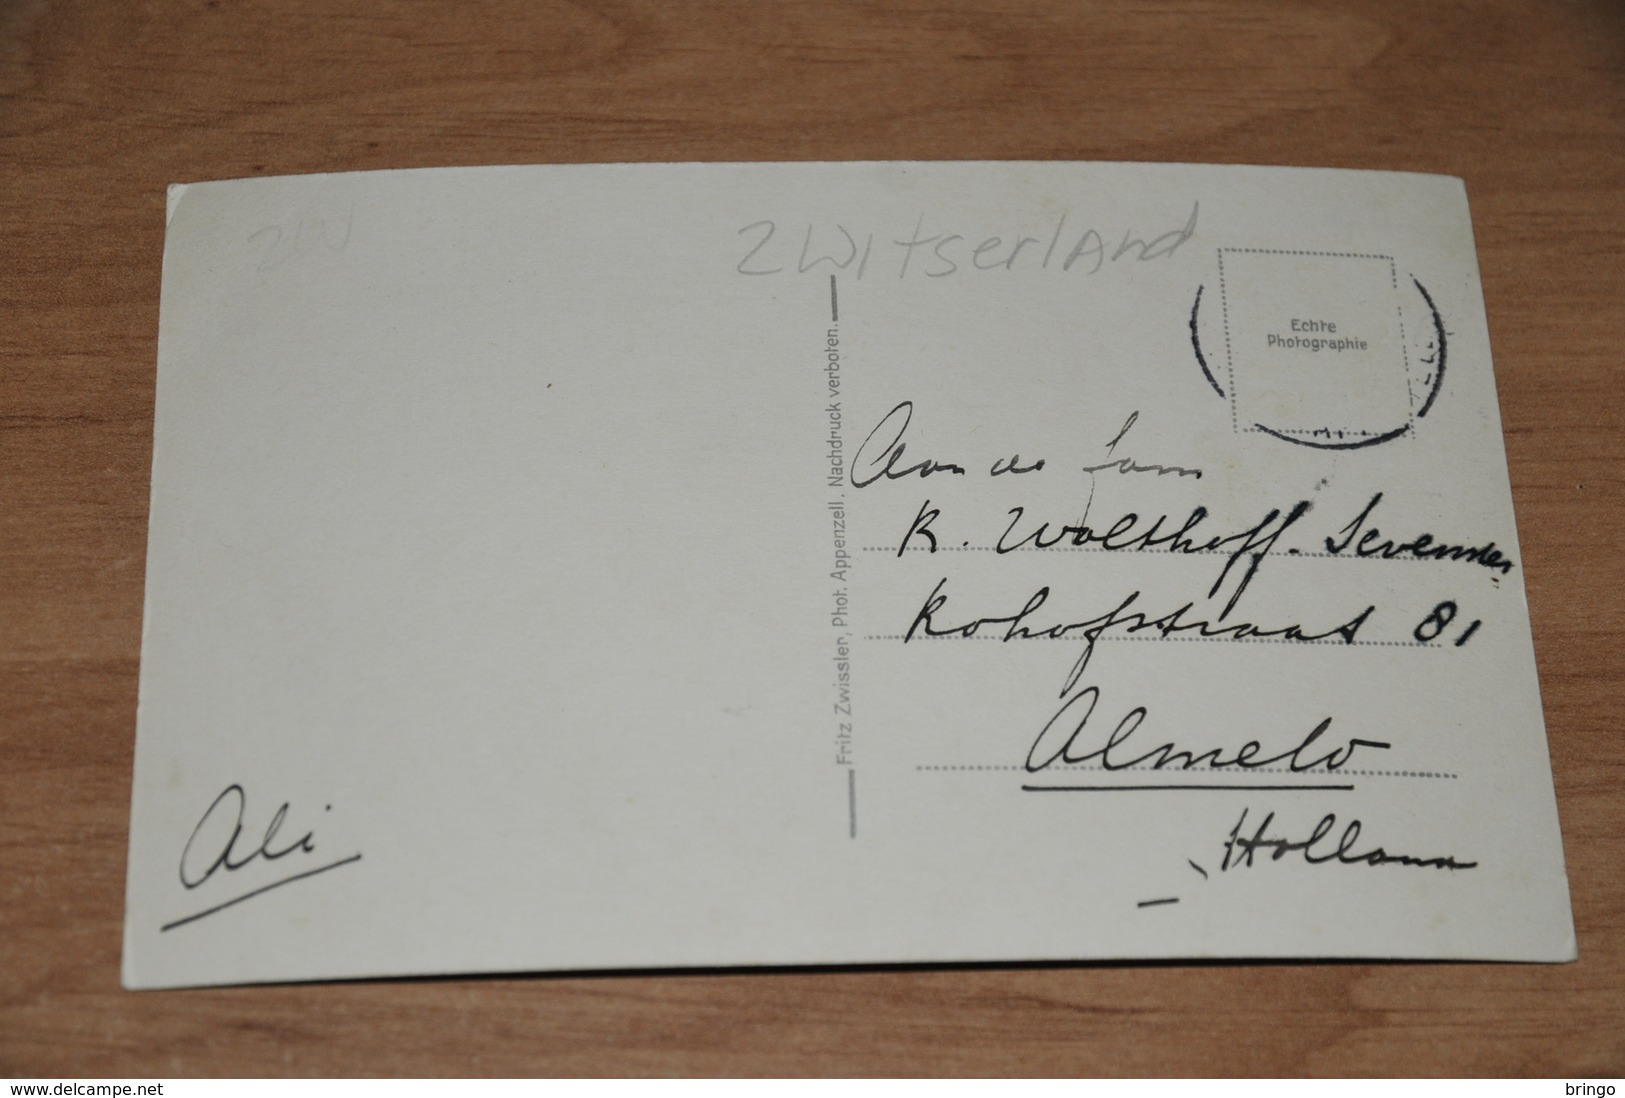 ZW
ZWITSERLAND
Echte
Photographie
Fritz Zwissler, Phot. Appenzell. Nachdruck verboten.
Aan de fam
R. Wolthoff-
Rohofstraat 81
Almelo
Holland
Ali
www.delcampe.net
bringo